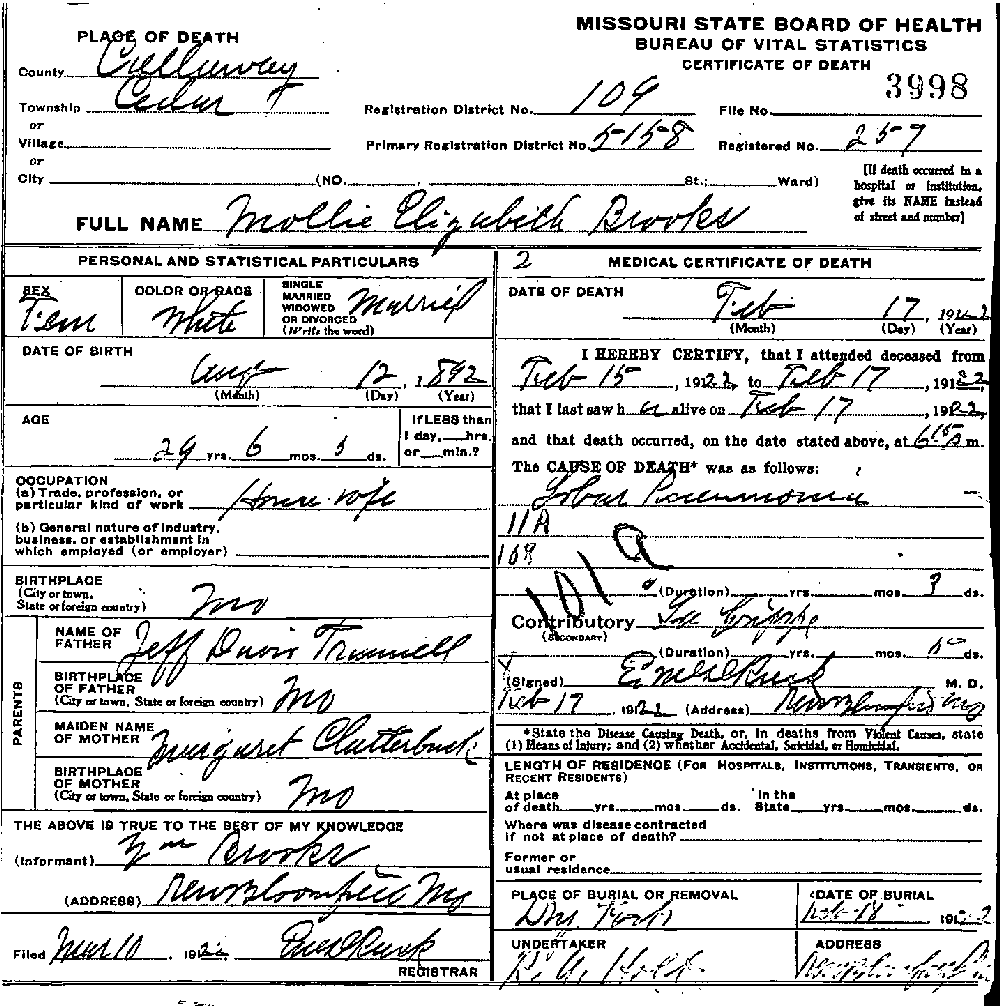 MISSOURI STATE BOARD OF HEALTH
BUREAU OF VITAL STATISTICS
CERTIFICATE OF DEATH
PLACE OF DEATH
County Callaway
Township Cedar
or
Village
or
City (NO. , St.; Ward)
Registration District No. 109
File No. 3998
Primary Registration District No. 5158
Registered No. 257
[If death occurred in a
hospital or institution,
give its NAME instead
of street and number]
FULL NAME Mollie Elizabeth Brooks
PERSONAL AND STATISTICAL PARTICULARS
SEX Fem
COLOR OR RACE White
SINGLE
MARRIED
WIDOWED
OR DIVORCED
(Write the word) Married
DATE OF BIRTH
Aug 12, 1892
(Month) (Day) (Year)
AGE
29 yrs. 6 mos. 5 ds.
If LESS than
1 day, hrs.
or min.?
OCCUPATION
(a) Trade, profession, or
particular kind of work House wife
(b) General nature of industry,
business, or establishment in
which employed (or employer)
BIRTHPLACE
(City or town,
State or foreign country) Mo
PARENTS
NAME OF
FATHER Jeff Davis Trammell
BIRTHPLACE
OF FATHER
(City or town, State or foreign country) Mo
MAIDEN NAME
OF MOTHER Margaret Clatterbuck
BIRTHPLACE
OF MOTHER
(City or town, State or foreign country) Mo
THE ABOVE IS TRUE TO THE BEST OF MY KNOWLEDGE
(Informant) Wm Brooks
(ADDRESS) New Bloomfield Mo
Filed Mar 10, 1922
REGISTRAR
2 MEDICAL CERTIFICATE OF DEATH
DATE OF DEATH
Feb 17, 1922
(Month) (Day) (Year)
I HEREBY CERTIFY, that I attended deceased from
Feb 15, 1922, to Feb 17, 1922,
that I last saw h er alive on Feb 17, 1922,
and that death occurred, on the date stated above, at 6 15 m.
The CAUSE OF DEATH* was as follows:
Lobar Pneumonia
11A
108
101a
(Duration) yrs. mos. ds.
Contributory La Grippe
(SECONDARY)
(Duration) yrs. mos. 10 ds.
(Signed) M. D.
Feb 17 1922 (Address) New Bloomfield Mo
*State the Disease Causing Death, or, in deaths from Violent Causes, state
(1) Means of Injury; and (2) whether Accidental, Suicidal, or Homicidal.
LENGTH OF RESIDENCE (FOR HOSPITALS, INSTITUTIONS, TRANSIENTS, OR
RECENT RESIDENTS)
At place
of death yrs. mos. ds.
In the
State yrs. mos. ds.
Where was disease contracted
if not at place of death?
Former or
usual residence
PLACE OF BURIAL OR REMOVAL
Dry Fork
DATE OF BURIAL
Feb 18 1922
UNDERTAKER
ADDRESS
New Bloomfield